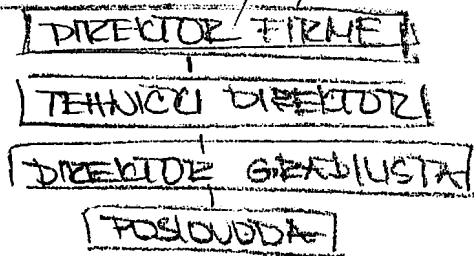 DIREKTOR FIRME
TEHNICKI DIREKTOR
DIREKTOR GRADILISTA
POSLOVODA